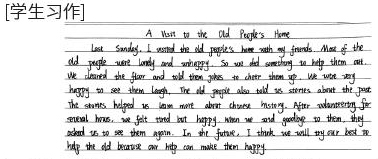 [学生习作]
A Visit to the Old People's Home
Last Sunday, I visited the old people's home with my friends. Most of the
old people were lonely and unhappy. So we did something to help them out.
We cleaned the floor and told them jokes to cheer them up. We were very
happy to see them laugh. The old people also told us stories about the past.
The stories helped us learn more about chinese history. After volunteering for
several hours, we felt tired but happy when we said goodbye to them. they
asked us to see them again. In the future, I think we will try our best to
help the old because our help can make them happy.